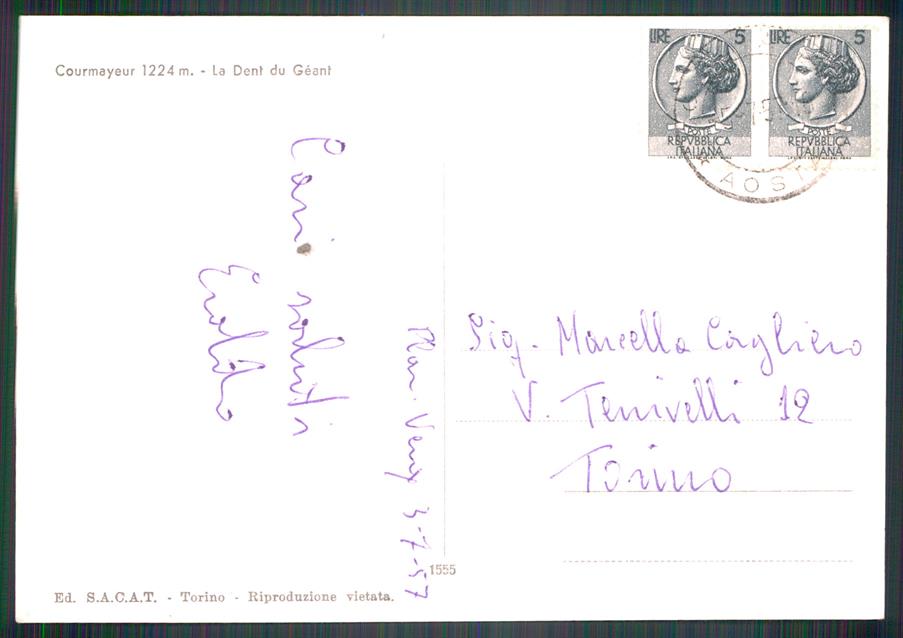 Courmayeur 1224 m. - La Dent du Géant
LIRE 5
POSTE
REPVBBLICA
ITALIANA
LIRE 5
POSTE
REPVBBLICA
ITALIANA
AOSTA
Cari
saluti
Plan Veny 3-7-57
Sig. Marcella Cagliero
V. Tenivelli 12
Torino
1555
Ed. S.A.C.A.T. - Torino - Riproduzione vietata.